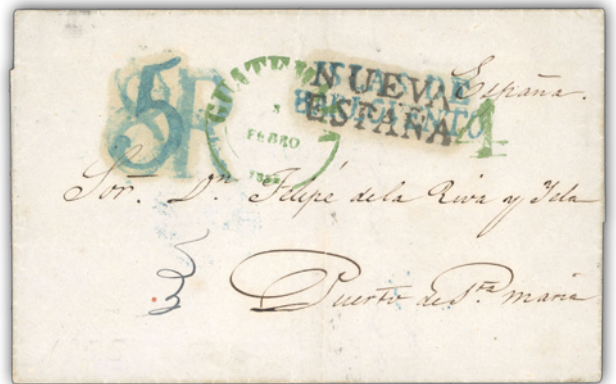 5
8R
GUATEM
3
FEBRO
NUEVA
ESPAÑA
España.
4
Sor. Dn Felipe de la Riva y Isla
Puerto de Sta. maria